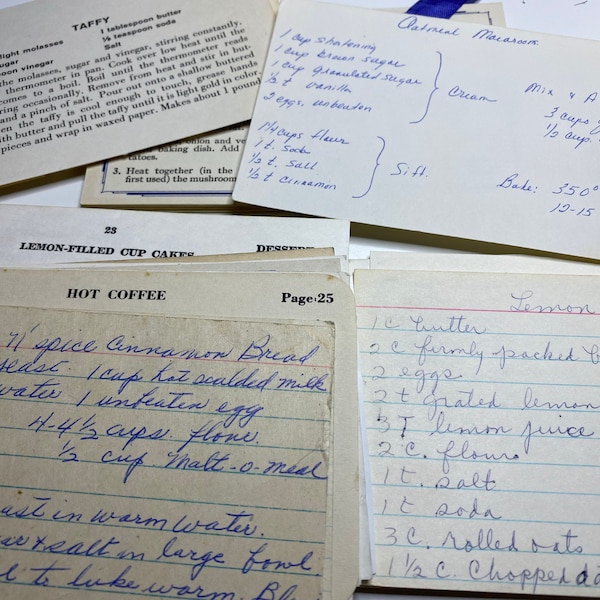 TAFFY
light molasses
1 tablespoon butter
⅛ teaspoon soda
Salt
spoon vinegar
the molasses, sugar and vinegar, stirring constantly,
thermometer in pan. Cook over low heat until the
comes to a boil. Boil until the thermometer reads
ring occasionally. Remove from heat and stir in but-
and a pinch of salt. Pour out onto a shallow buttered
en the taffy is cool enough to touch, grease hands
with butter and pull the taffy until it is light gold in color,
pieces and wrap in waxed paper. Makes about 1 pound
baking dish. Add
tatoes.
3. Heat together (in the
first used) the mushroom
Oatmeal Macaroons
1 cup shortening
1 cup brown sugar
1 cup granulated sugar
½ t vanilla
2 eggs, unbeaten
Cream
Mix & A
3 cups
½ cup
1¼ cups flour
1 t. soda
½ t. salt
½ t cinnamon
Sift.
Bake: 350°
12-15
23
LEMON-FILLED CUP CAKES
DESSERT
HOT COFFEE
Page 25
spice Cinnamon Bread
yeast. 1 cup hot scalded milk
water 1 unbeaten egg
4-4½ cups. flour.
½ cup Malt-o-meal
ast in warm water.
ar & salt in large bowl
to luke warm. Bl
Lemon
1 c butter
2 c firmly packed b
2 eggs
2 t grated lemon
3 T lemon juice
2 c. flour
1 t. salt
1 t soda
3 c. rolled oats
1½ c. Chopped da